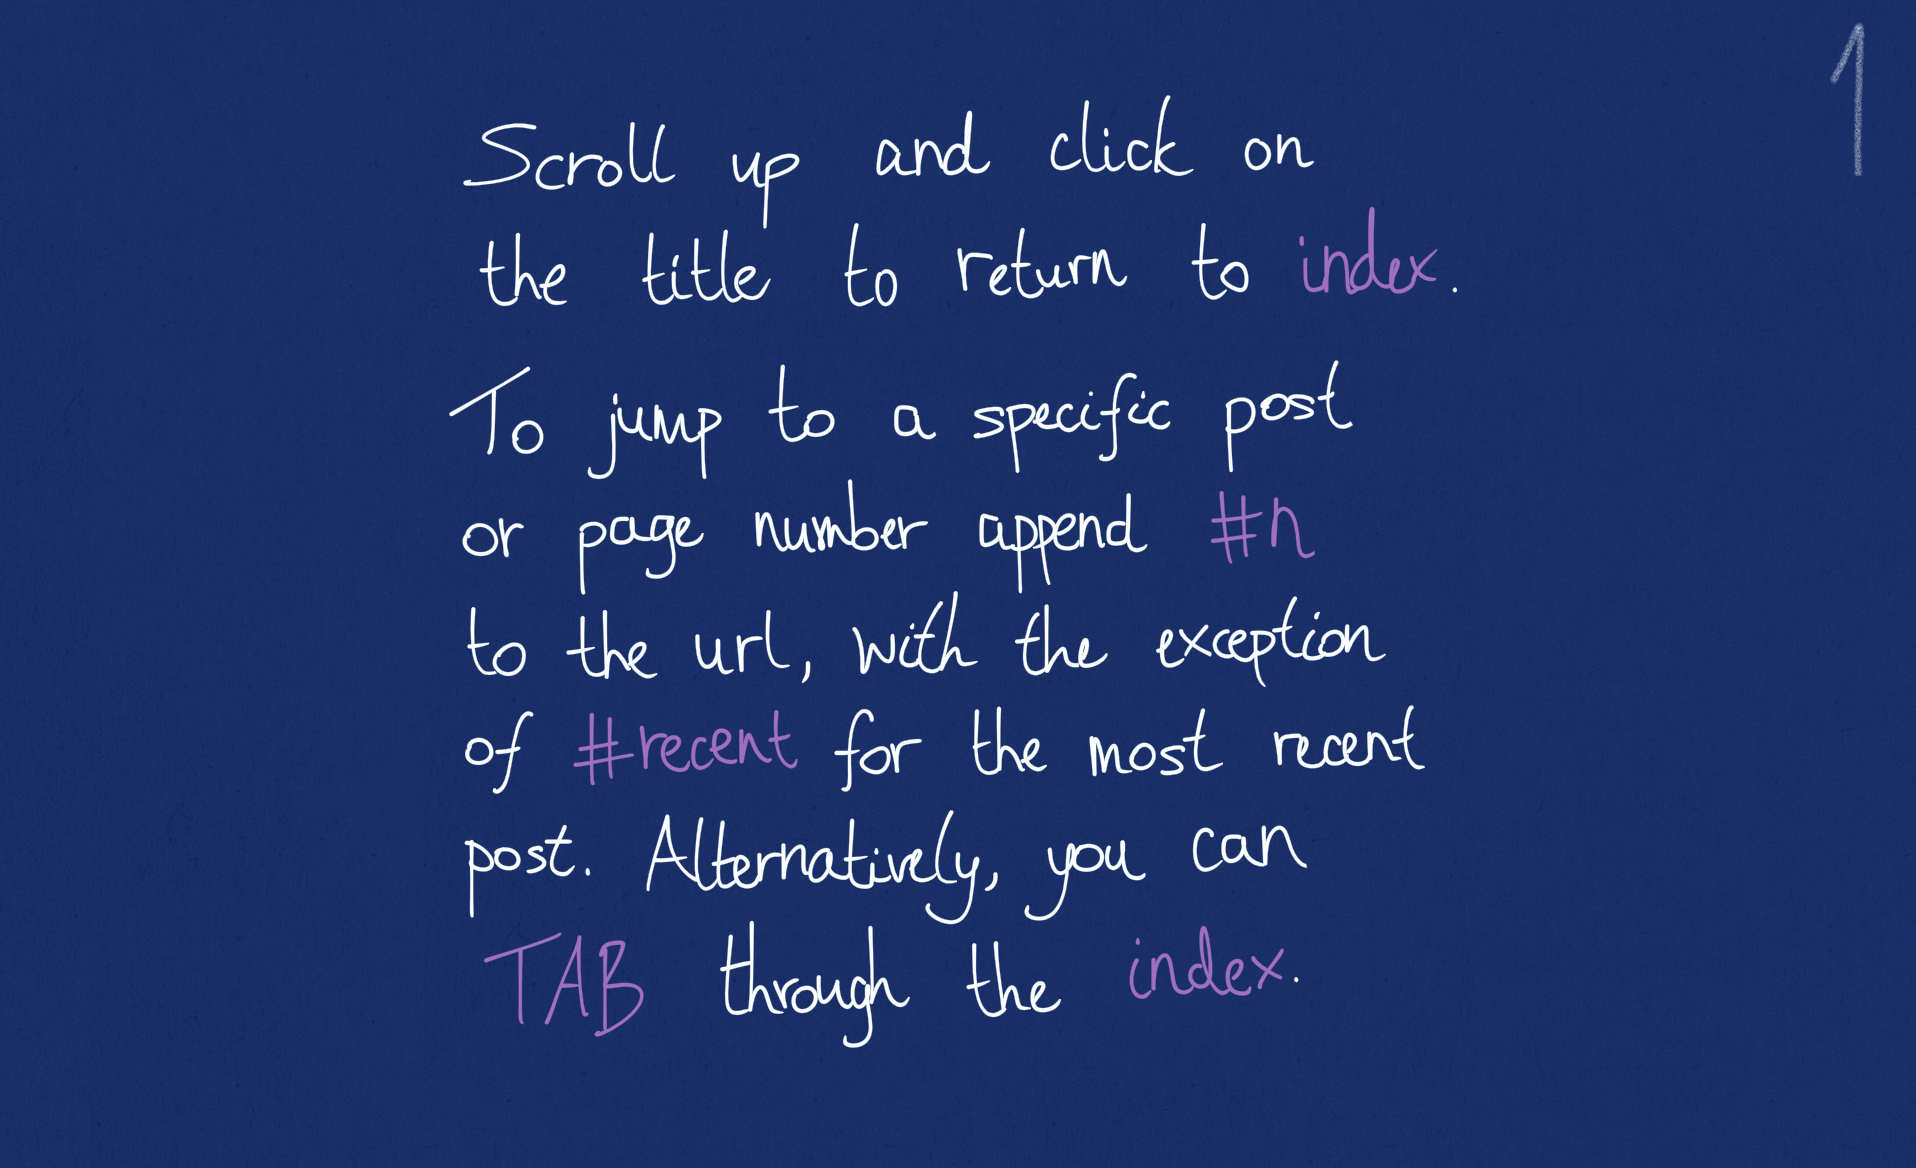 1
Scroll up and click on
the title to return to index.
To jump to a specific post
or page number append #n
to the url, with the exception
of #recent for the most recent
post. Alternatively, you can
TAB through the index.